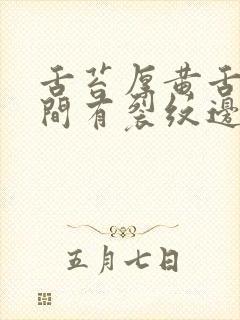 舌苔厚黄舌
间有裂纹边
五月七日